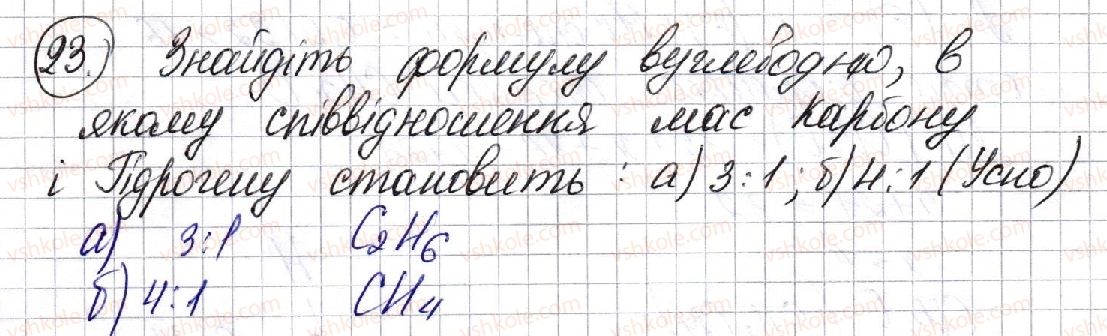 23.) Знайдіть формулу вуглеводню, в
якому співвідношення мас Карбону
і Гідрогену становить : а) 3:1 ; б) 4:1 (Усно)
а) 3:1 C₂H₆
б) 4:1 CH₄